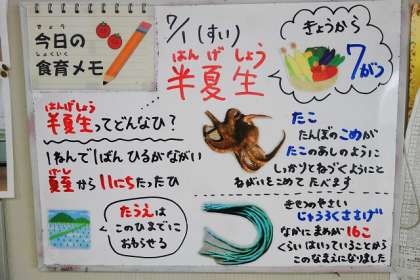 きょう
今日の
しょくいく
食育メモ
7/1(すい)
はんげしょう
半夏生
きょうから
7がつ
はんげしょう
半夏生ってどんなひ?
1ねんで1ばん ひるがながい
げし
夏至から11にちたったひ
たうえは
このひまでに
おわらせる
たこ
たんぼのこめが
たこのあしのように
しっかりとねづくようにと
ねがいをこめて たべます
きせつのやさい
じゅうろくささげ
なかにまめが16こ
くらいはいっていることから
このなまえになりました